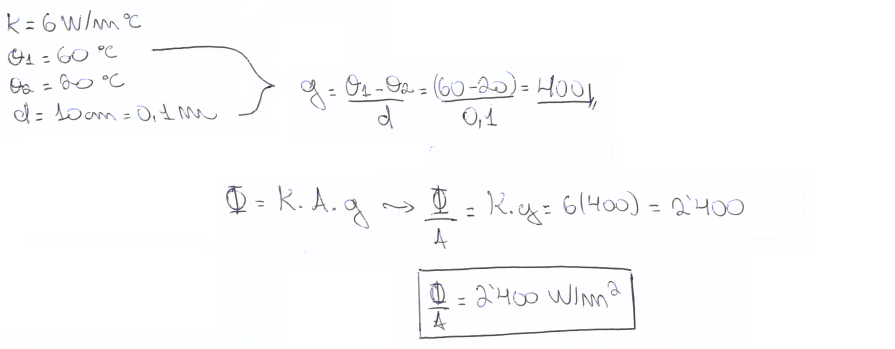 k = 6 W/m °C
θ1 = 60 °C
θ2 = 20 °C
d = 10 cm = 0,1 m
g = θ1 - θ2 / d = (60 - 20) / 0,1 = 400
Φ = K. A. g ⤳ Φ/A = K. g = 6(400) = 2'400
Φ/A = 2'400 W/m²